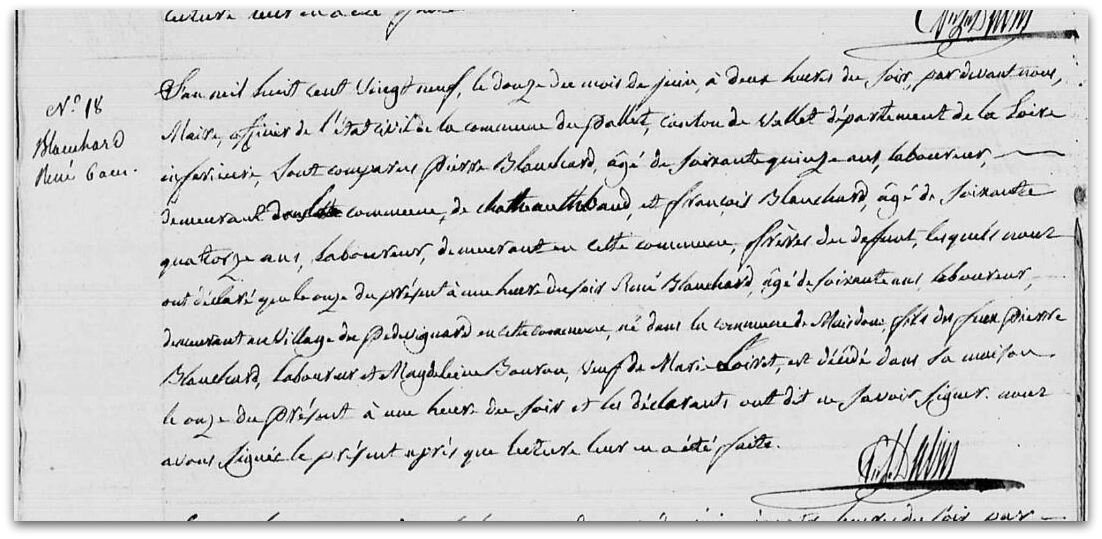 lecture leur en a été faite
N.° 18
Blanchard
René 60 ans.
L'an mil huit cent vingt neuf, le douze du mois de juin, à deux heures du soir, par devant nous,
Maire, officier de l'état civil de la commune du Pallet, canton de Vallet département de la Loire
inferieure, sont comparus Pierre Blanchard, âgé de soixante quinze ans, laboureur,
demeurant commune, de chateauthebaud, et françois Blanchard, âgé de soixante
quatorze ans, laboureur, demeurant en cette commune, frères du defunt, lesquels nous
ont déclaré que le onze du présent à une heure du soir René Blanchard, âgé de soixante ans laboureur,
demeurant au village du Pedevignard en cette commune, né dans la commune de Maisdon fils du feu Pierre
Blanchard, laboureur et Magdeleine Bouron, veuf de Marie Loiret, est décédé dans sa maison
le onze du présent à une heure du soir et les déclarants ont dit ne savoir signer. nous
avons signé le présent après que lecture leur en a été faite.